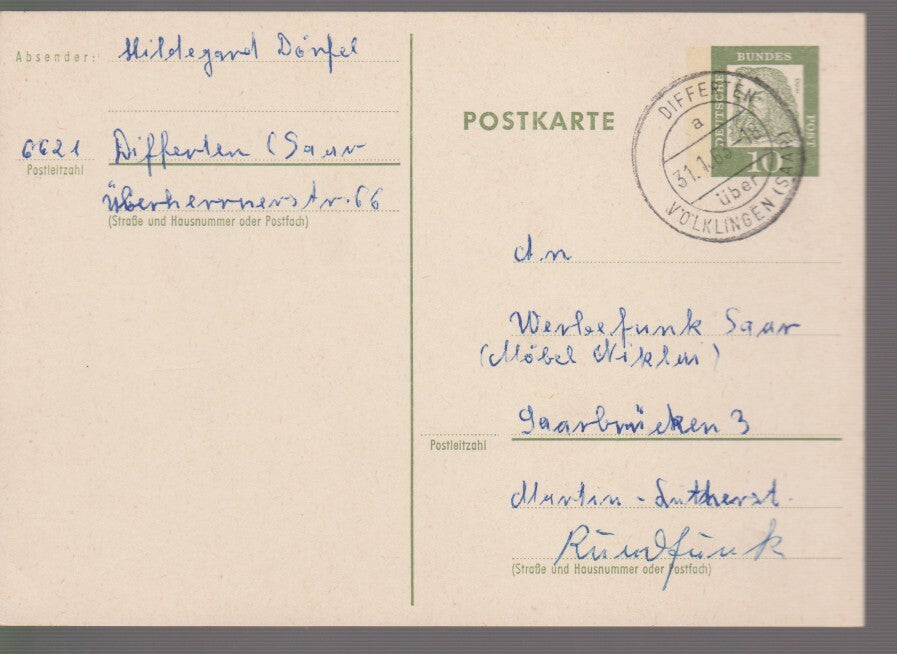 Absender: Hildegard Dörfel
6621 Differten (Saar
Postleitzahl
Überherrnerstr. 66
(Straße und Hausnummer oder Postfach)
POSTKARTE
DEUTSCHE BUNDESPOST
10
DIFFERTEN
a
31.1.63 -18
über
VÖLKLINGEN (SAAR)
An
Werbefunk Saar
(Möbel Niklas)
Saarbrücken 3
Postleitzahl
Martin-Lutherst.
Rundfunk
(Straße und Hausnummer oder Postfach)